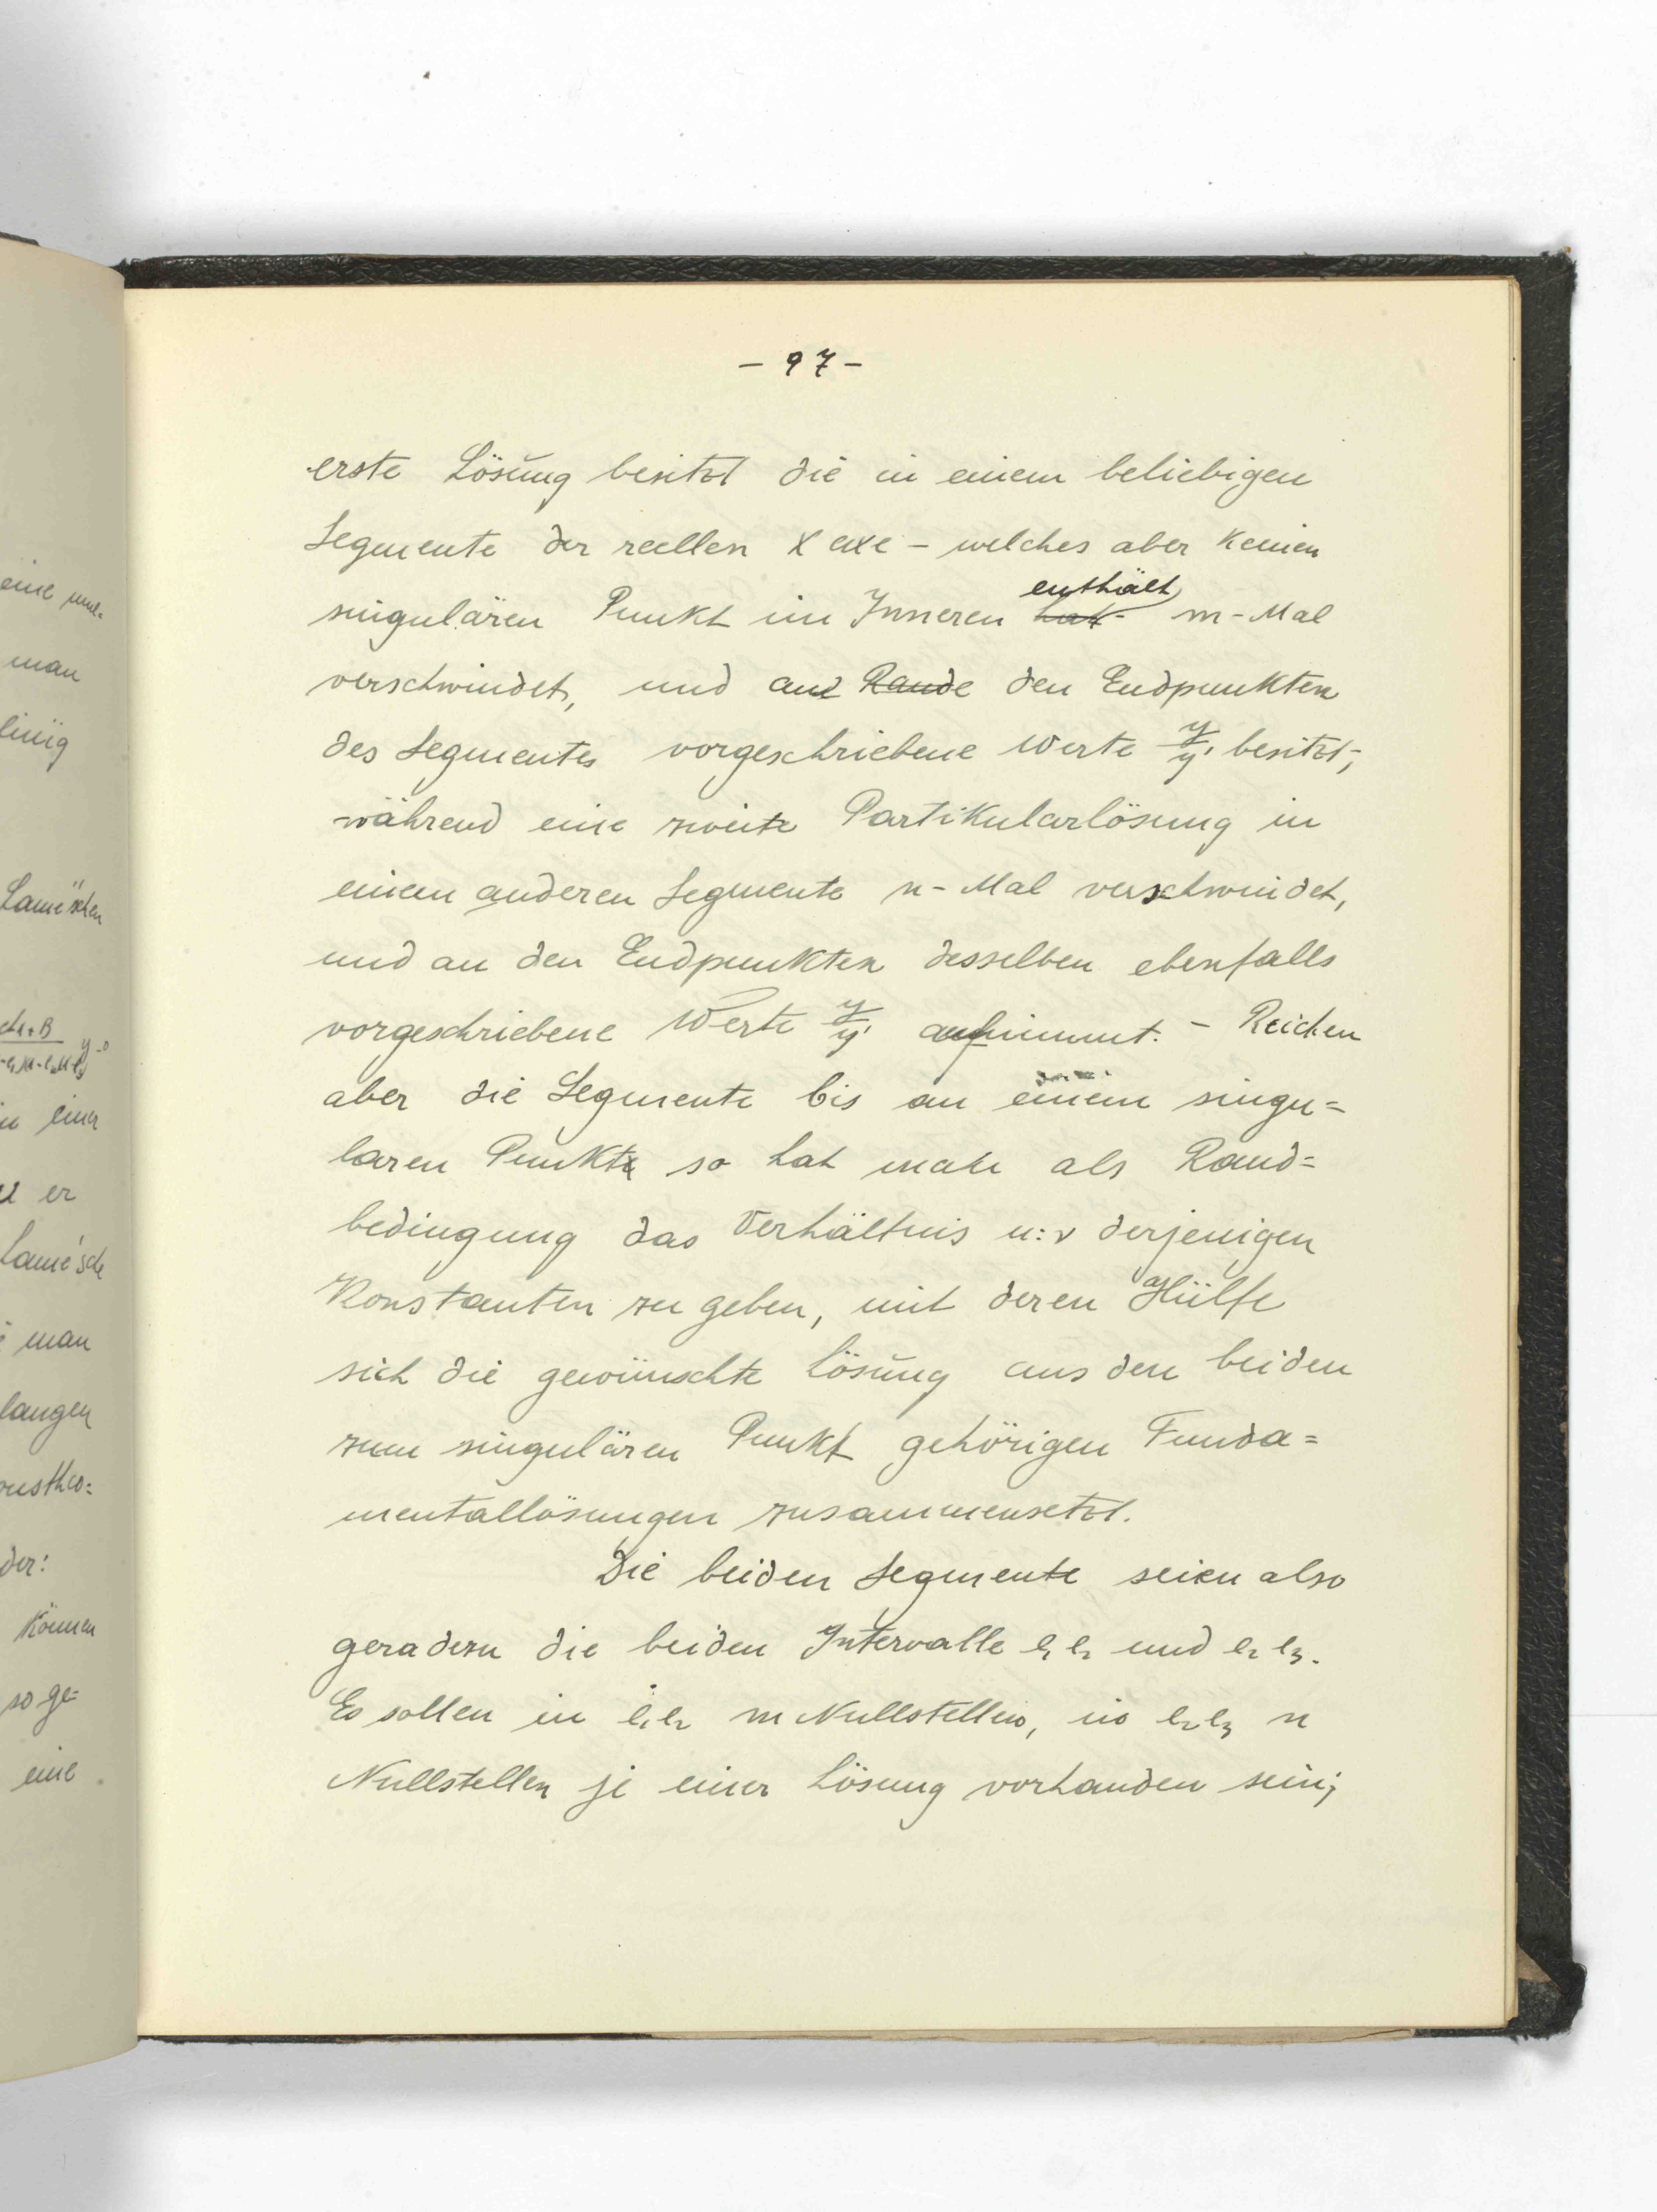 - 97 -
erste Lösung besitzt die in einem beliebigen
Segmente der reellen x axe - welches aber keinen
singulären Punkt im Inneren hat enthält m-Mal
verschwindet, und am Rande den Endpunkten
des Segmentes vorgeschriebene Werte y/y' besitzt;
während eine zweite Partikularlösung in
einem anderen Segmente n-Mal verschwindet,
und an den Endpunkten desselben ebenfalls
vorgeschriebene Werte y/y' aufnimmt. - Reichen
aber die Segmente bis an einem singu=
laren Punkte so hat man als Rand=
bedingung das Verhältnis u:v derjenigen
Konstanten zu geben, mit deren Hülfe
sich die gewünschte Lösung aus den beiden
zum singulären Punkt gehörigen Funda=
mentallösungen zusammensetzt.
Die beiden Segmente seien also
geradezu die beiden Intervalle e₁ e₂ und e₂ e₃.
Es sollen in e₁e₂ m Nullstellen, in e₂e₃ n
Nullstellen je einer Lösung vorhanden sein;
man
Lamé'schen
in einer
er
Lamé'sche
man
langen
der:
können
so ge=
eine